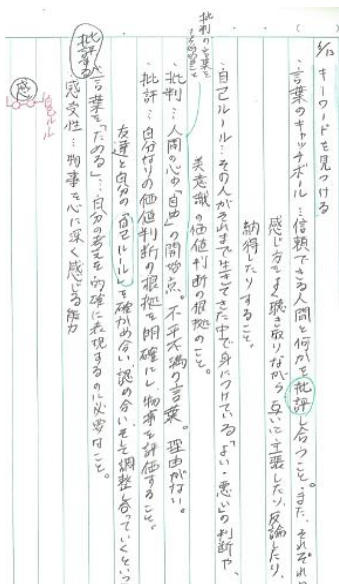 6/12 キーワードを見つける
・言葉のキャッチボール…信頼できる人間と何かを批評し合うこと。また、それぞれの
感じ方をよく聴き取りながら、互いに主張したり、反論したり、
納得したりすること。
・自己ルール…その人がそれまで生きてきた中で身につけている「よい・悪い」の判断や、
美意識の価値判断の根拠のこと。
批判の言葉を
・批判…人間の心の「自由」の開始点。不平不満の言葉。理由がない。
・批評…自分なりの価値判断の根拠を明確にし、物事を評価すること。
友達と自分の「自己ルール」を確かめ合い、認め合い、そして調整し合っていくという
批評する
言葉を「ためる」…自分の考えを的確に表現するのに必要なこと。
感受性…物事を心に深く感じる能力
感
自己ルール